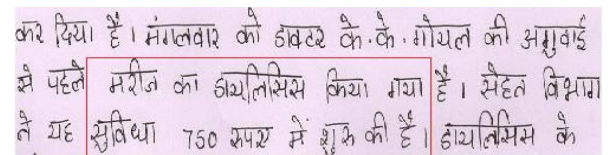 कर दिया है । मंगलवार को डाक्टर के.के. गोयल की अगुवाई
से पहले मरीज का डायलिसिस किया गया है । सेहत विभाग
ने यह सुविधा 750 रुपए में शुरू की है । डायलिसिस के